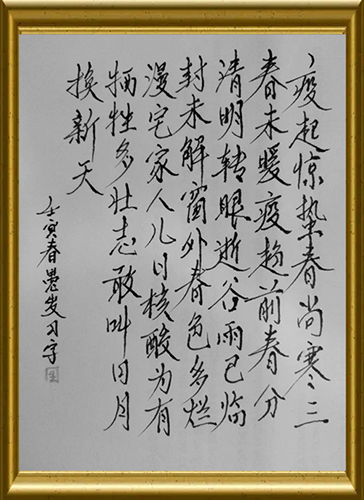 疫起惊蛰春尚寒三
春未暖疫趋前春分
清明转眼逝谷雨已临
封未解窗外春色多烂
漫宅家人儿日核酸为有
牺牲多壮志敢叫日月
换新天
壬寅春愚叟习字